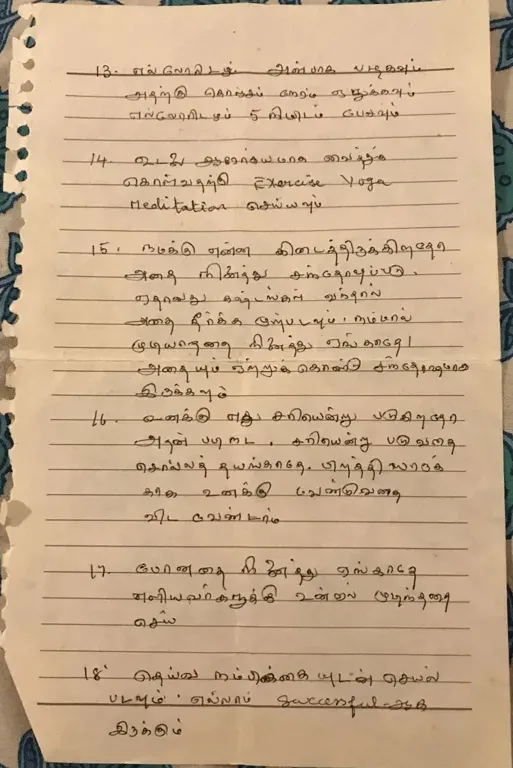 13. எல்லோரிடமும் அன்பாக பழகவும்
அதற்கு கொஞ்சம் நேரம் ஒதுக்கவும்
எல்லோரிடமும் 5 நிமிடம் பேசவும்
14. உடலை ஆரோக்யமாக வைத்துக்
கொள்வதற்கு Exercise Yoga
Meditation செய்யவும்
15. நமக்கு என்ன கிடைத்திருக்கிறதோ
அதை நினைத்து சந்தோஷப்படு.
ஏதாவது கஷ்டங்கள் வந்தால்
அதை தீர்க்க முற்படவும். நம்மால்
முடியாததை நினைத்து ஏங்காதே!
அதையும் ஏற்றுக்கொண்டு சந்தோஷமாக
இருக்கவும்
16. உனக்கு எது சரியென்று படுகிறதோ
அதன் படி நட. சரியென்று படுவதை
சொல்லத் தயங்காதே. பிறத்தியாருக்
காக உனக்கு வேண்டுவதை
விட வேண்டாம்
17. போனதை நினைத்து ஏங்காதே
எளியவர்களுக்கு உன்னால் முடிந்ததை
செய்
18. தெய்வ நம்பிக்கையுடன் செயல்
படவும். எல்லாம் Successful ஆக
இருக்கும்